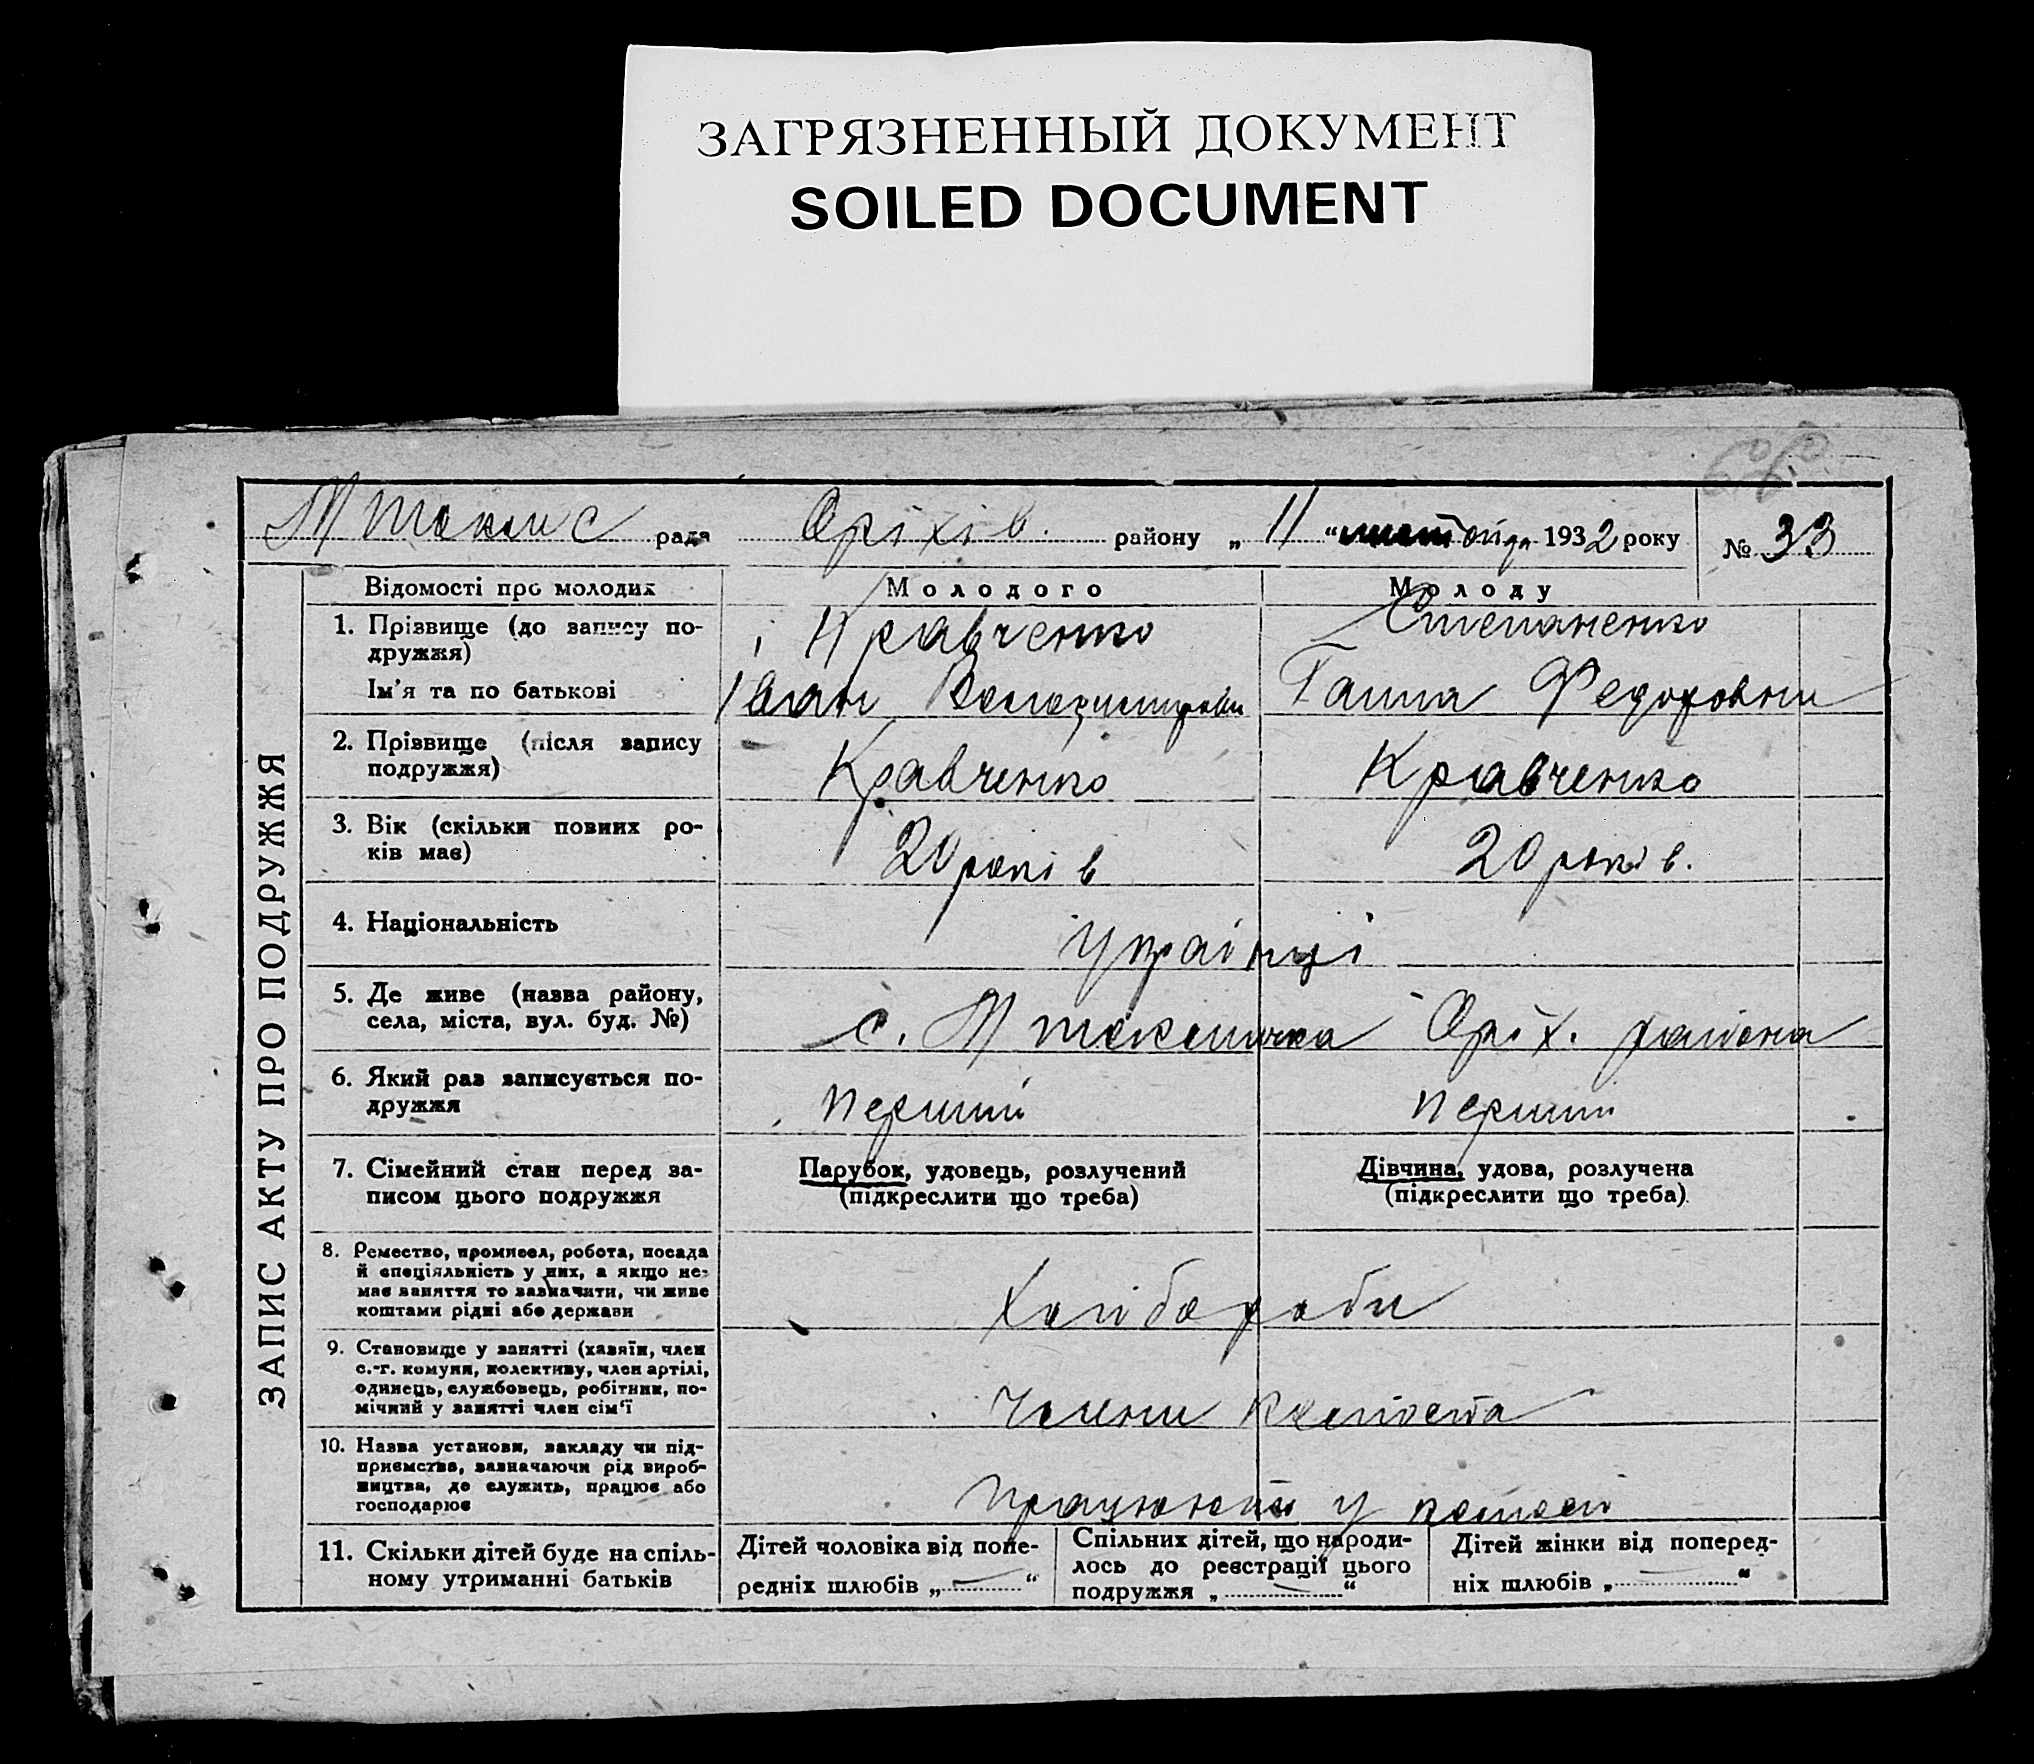 ЗАГРЯЗНЕННЫЙ ДОКУМЕНТ
SOILED DOCUMENT
рада Оріхів. району „ 11 “ 1932 року № 33
ЗАПИС АКТУ ПРО ПОДРУЖЖЯ
Відомості про молодих Молодого Молоду
1. Прізвище (до запису по- Кравченко Степаненко
дружжя)
Ім'я та по батькові Іван Ганна Федоровна
2. Прізвище (після запису Кравченко Кравченко
подружжя)
3. Вік (скільки повних ро- 20 років 20 років.
ків має)
4. Національність Українці
5. Де живе (назва району, с. М Токмачка Оріх. района
села, міста, вул. буд. №)
6. Який раз записується по- перший перший
дружжя
7. Сімейний стан перед за- Парубок, удовець, розлучений Дівчина, удова, розлучена
писом цього подружжя (підкреслити що треба) (підкреслити що треба)
8. Ремество, промисел, робота, посада
й спеціяльність у них, а якщо не-
має заняття то зазначити, чи живе Хлібороби
коштами рідні або держави
9. Становище у занятті (хазяїн, член
с.-г. комуни, колективу, член артілі,
одинець, службовець, робітник, по- Члени
мічний у занятті член сім'ї
10. Назва установи, закладу чи під-
приємства, зазначаючи рід вироб-
ництва, де служить, працює або
господарює Працюють у
11. Скільки дітей буде на спіль-
ному утриманні батьків
Дітей чоловіка від попе-
редніх шлюбів „ — “
Спільних дітей, що народи-
лось до реєстрації цього
подружжя „ — “
Дітей жінки від поперед-
ніх шлюбів „ — “